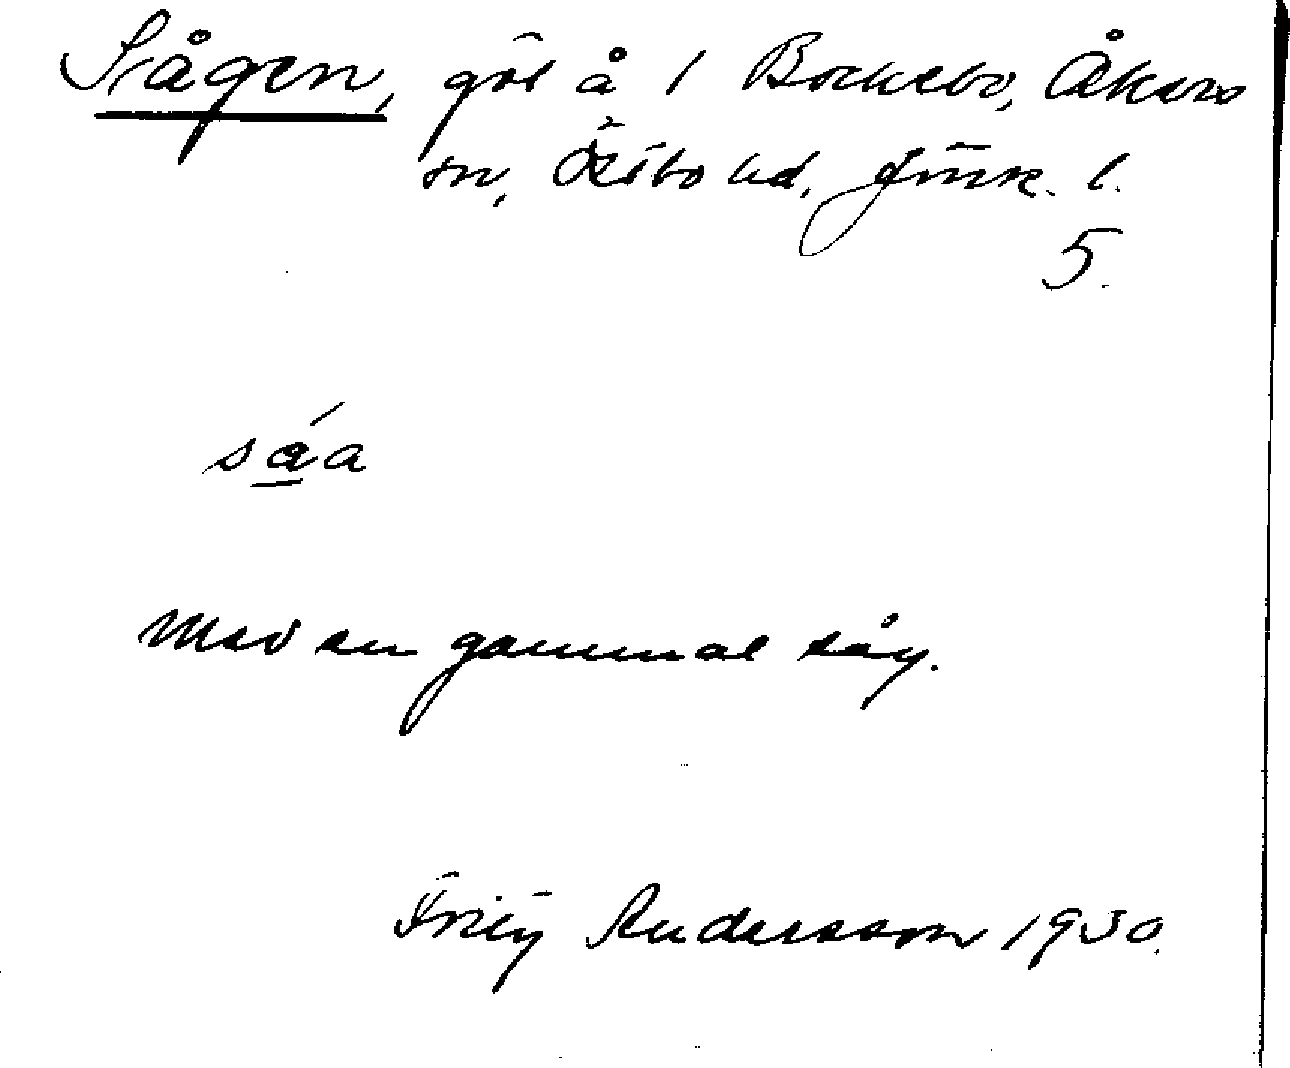 Sågen, göl å 1 Bockebo, Åkers
sn, Östbo hd, Jönk. l.
5.
såa
Med en gammal såg.
Andersson 1930.